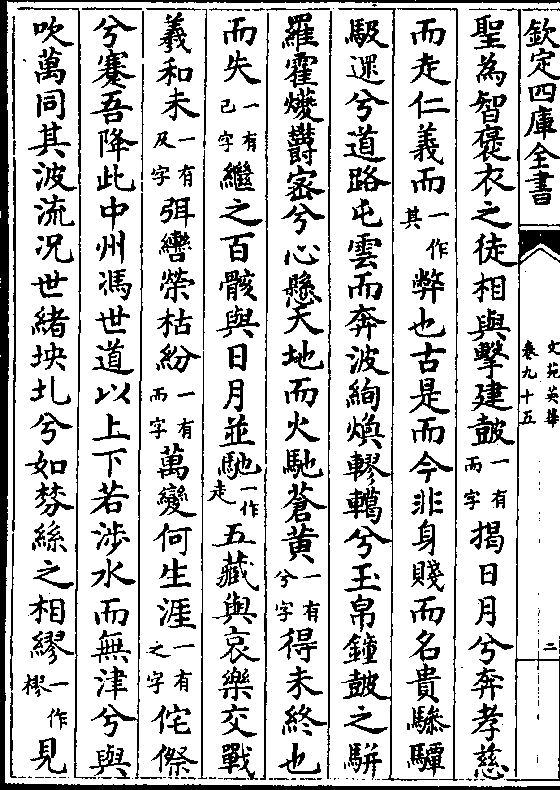 欽定四庫全書
文苑英華
卷九十五
二
聖為智褒衣之徒相與擊建鼓一有而字揭日月兮奔孝慈
而走仁義而一作其弊也古是而今非身賤而名貴驂驔
馺遝兮道路屯雲而奔波絢煥轇轕兮玉帛鐘鼓之駢
羅霍㸌欝宻兮心懸天地而火馳蒼黄一有兮字得未終也
而失一有已字繼之百骸與日月並馳一作走五藏與哀樂交戰
羲和未一有及字弭轡榮枯紛一有而字萬變何生涯一有之字侘傺
兮蹇吾降此中州馮世道以上下若涉水而無津兮與
吹萬同其波流况世緒坱圠兮如棼絲之相繆一作樛見